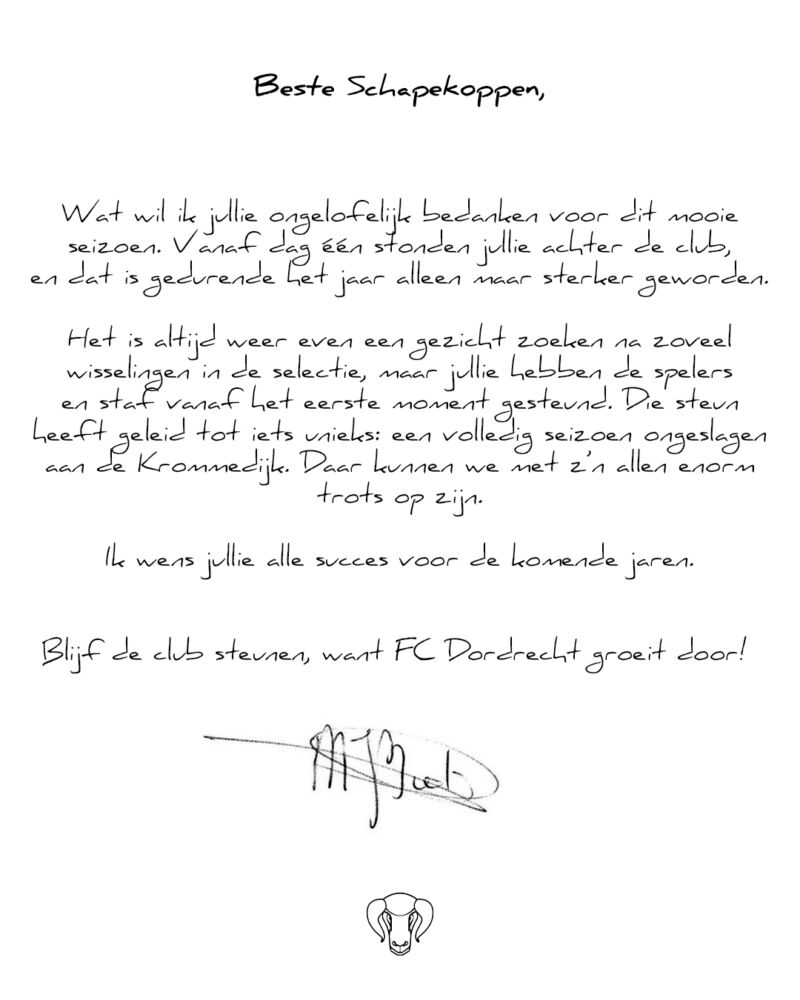 Beste Schapekoppen,
Wat wil ik jullie ongelofelijk bedanken voor dit mooie
seizoen. Vanaf dag één stonden jullie achter de club,
en dat is gedurende het jaar alleen maar sterker geworden.
Het is altijd weer even een gezicht zoeken na zoveel
wisselingen in de selectie, maar jullie hebben de spelers
en staf vanaf het eerste moment gesteund. Die steun
heeft geleid tot iets unieks: een volledig seizoen ongeslagen
aan de Krommedijk. Daar kunnen we met z'n allen enorm
trots op zijn.
Ik wens jullie alle succes voor de komende jaren.
Blijf de club steunen, want FC Dordrecht groeit door!